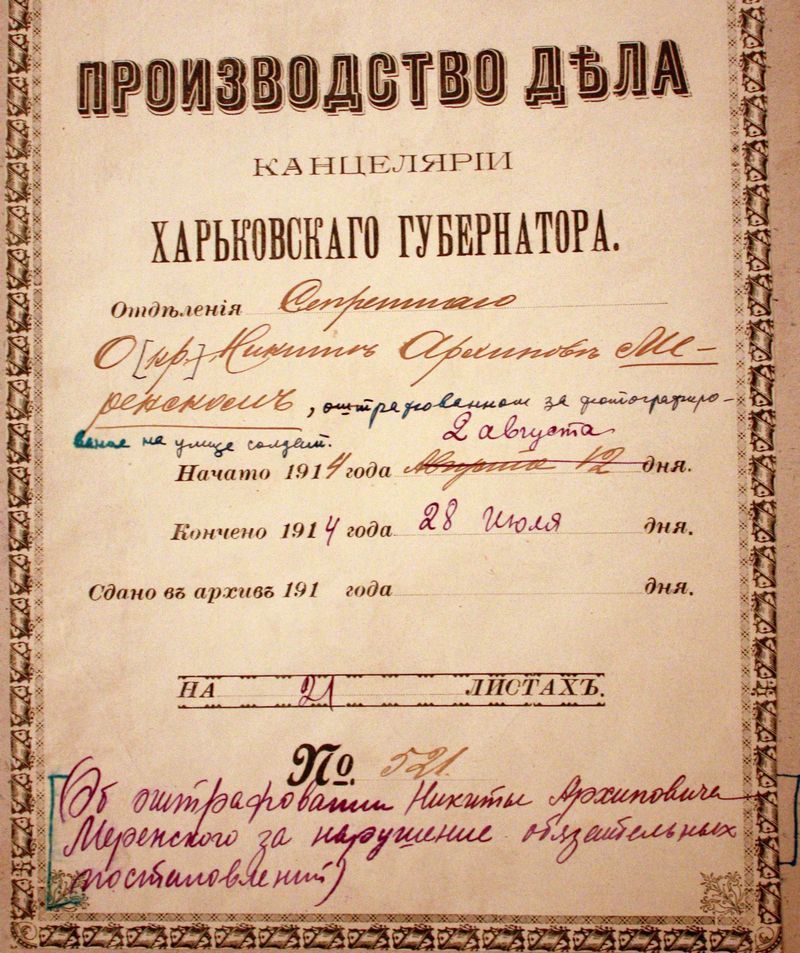 ПРОИЗВОДСТВО ДѢЛА
КАНЦЕЛЯРІИ
ХАРЬКОВСКАГО ГУБЕРНАТОРА.
Отдѣленія Секретнаго
О [кр.] Никитѣ Архиповѣ Ме-
ренскомъ, оштрафованном за фотографиро-
вание на улице солдат.
2 августа
Начато 1914 года Августа 12 дня.
Кончено 1914 года 28 Июля дня.
Сдано въ архивъ 191 года дня.
НА 21 ЛИСТАХЪ.
№ 521.
(Об оштрафовании Никиты Архиповича
Меренского за нарушение обязательных
постановлений)